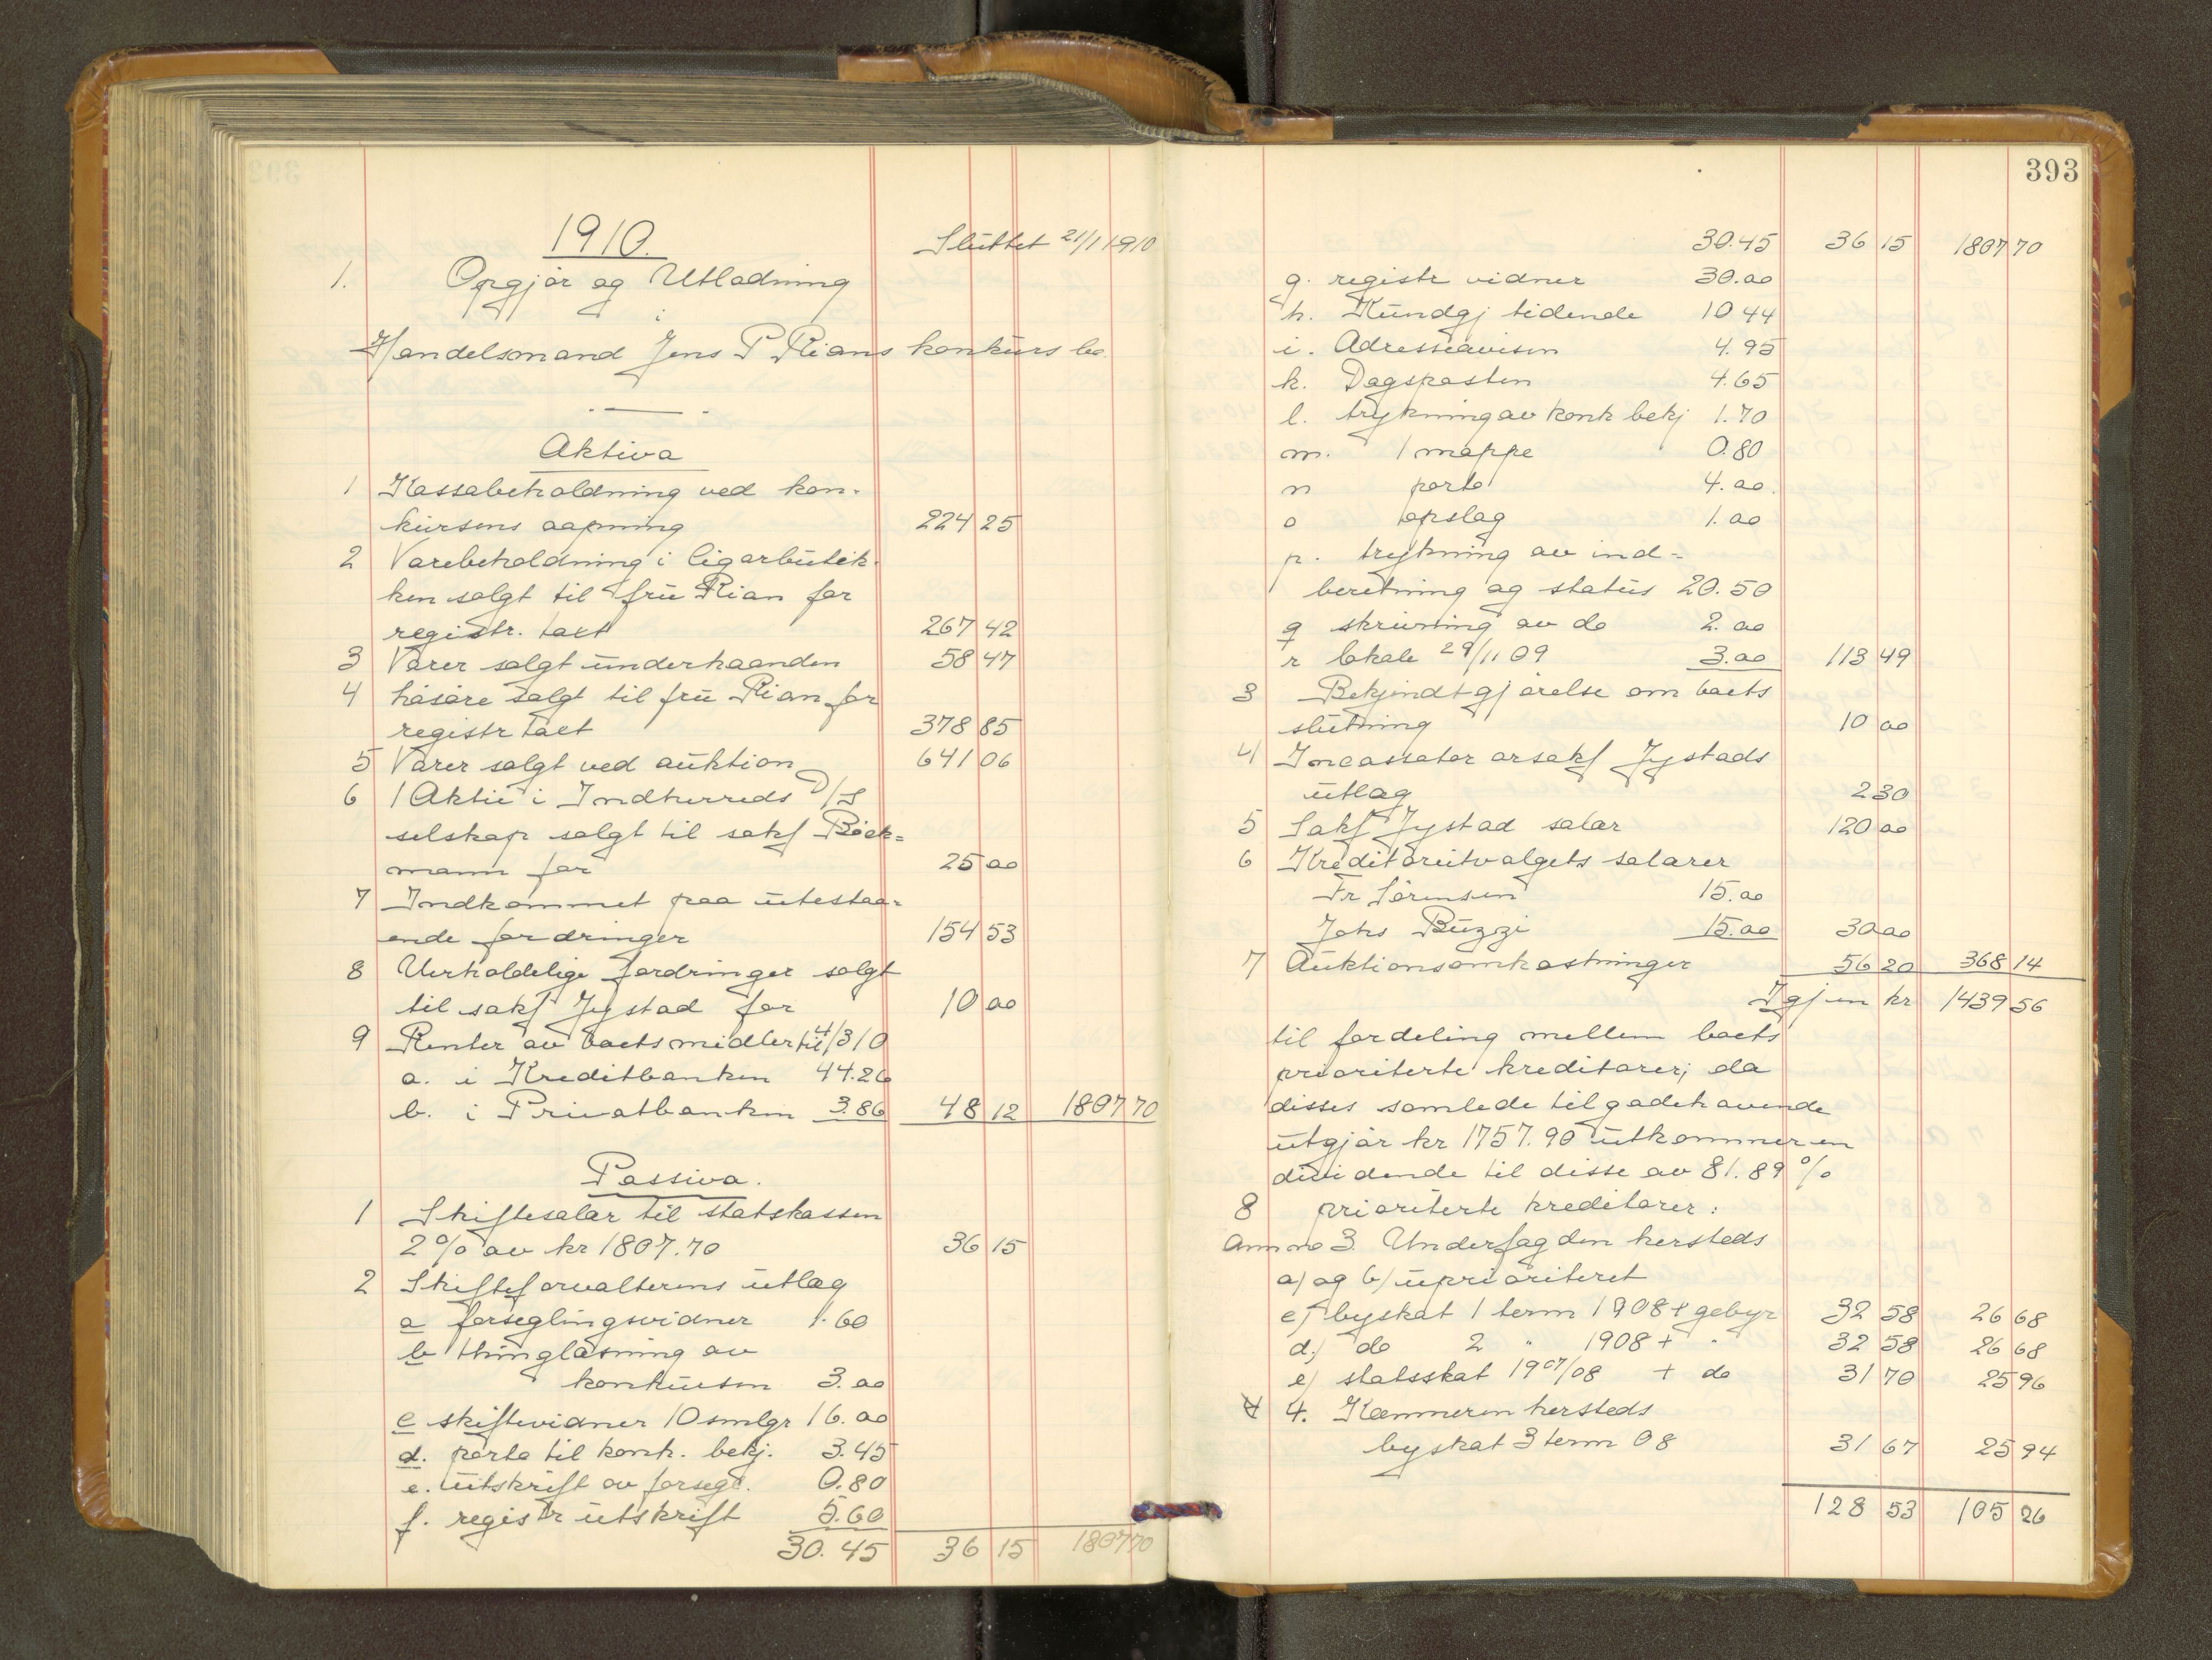 1910.
Sluttet 21/1 1910
1. Opgjør og Utlodning
i
Handelsmand Jens P Rians konkurs bo.
Aktiva
1 Kassabeholdning ved kon-
kursens aapning 224 25
2 Varebeholdning i Cigarbutik-
ken solgt til fru Rian for
registr. taxt 267 42
3 Varer solgt underhaanden 58 47
4 Løsøre solgt til fru Rian for
registr taxt 378 85
5 Varer solgt ved auktion 641 06
6 1 Aktie i Indherreds D/S
selskap solgt til sakf Böck-
mann for 25 00
7 Indkommet paa utestaa-
ende fordringer 154 53
8 Uerholdelige fordringer solgt
til sakf Jystad for 10 00
9 Renter av boets midler til 4/3 10
a. i Kreditbanken 44.26
b. i Privatbanken 3.86 48 12 1807 70
Passiva.
1 Skiftesalær til statskassen
2% av kr 1807.70 36 15
2 Skifteforvalterens utlæg
a forseglingsvidner 1.60
b thinglæsning av
konkursen 3.00
c skiftevidner 10 smlgr 16.00
d. porto til konk. bekj. 3.45
e. utskrift av forsegl. 0.80
f. registr utskrift 5.60
30.45 36 15 1807 70
393
30.45 36 15 1807 70
g. registr vidner 30.00
h. Kundgj tidende 10 44
i. Adresseavisen 4.95
k. Dagsposten 4.65
l. trykning av konk bekj 1.70
m. 1 mappe 0.80
n porto 4.00
o opslag 1.00
p. trykning av ind-
beretning og status 20.50
q skrivning av do 2.00
r lokale 29/11 09 3.00 113 49
3 Bekjendtgjørelse om boets
slutning 10 00
4 Incassator orsakf Jystads
utlæg 2 30
5 Sakf Jystad salær 120 00
6 Kreditorutvalgets salærer
Fr Sörensen 15.00
Johs Buzzi 15.00 30 00
7 Auktionsomkostninger 56 20 368 14
Igjen kr 1439 56
til fordeling mellem boets
prioriterte kreditorer; da
disses samlede tilgodehavende
utgjør kr 1757.90 utkommer en
dividende til disse av 81.89 %
8 prioriterte kreditorer:
Anm no 3. Underfogden hersteds
a) og b) uprioriteret
c) byskat 1 term 1908 + gebyr 32 58 26 68
d.) do 2 " 1908 + " 32 58 26 68
e) statsskat 1907/08 + do 31 70 25 96
4. Kæmneren hersteds
byskat 3 term 08 31 67 25 94
128 53 105 26